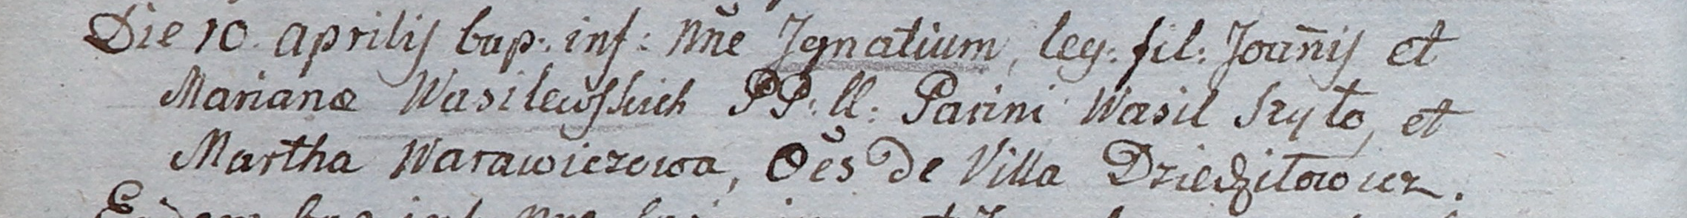 Die 10. Aprilij bap: inf: nñe Jgnatium, leg: fil: Joañij et
Marianæ Wasilewskich PP: ll: Parini Wasil Szyło, et
Martha Warawiczowa, Oẽs de Villa Dziedziłowicz.